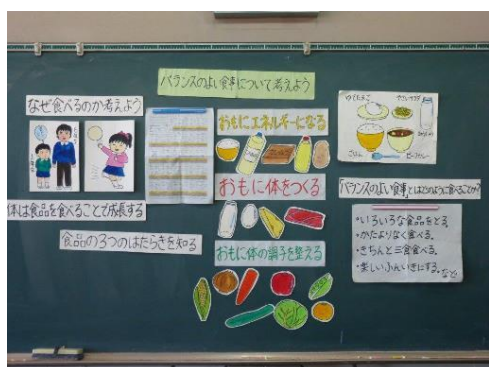 バランスのよい食事について考えよう
なぜ食べるのか考えよう
体は食品を食べることで成長する
食品の3つのはたらきを知る
おもにエネルギーになる
おもに体をつくる
おもに体の調子を整える
ゆでたまご
やさいサラダ
ごはん
ビーフカレー
「バランスのよい食事」とはどのように食べることか?
・いろいろな食品をとる。
・かたよりなく食べる。
・きちんと三食食べる。
・楽しいふんいきにする。など